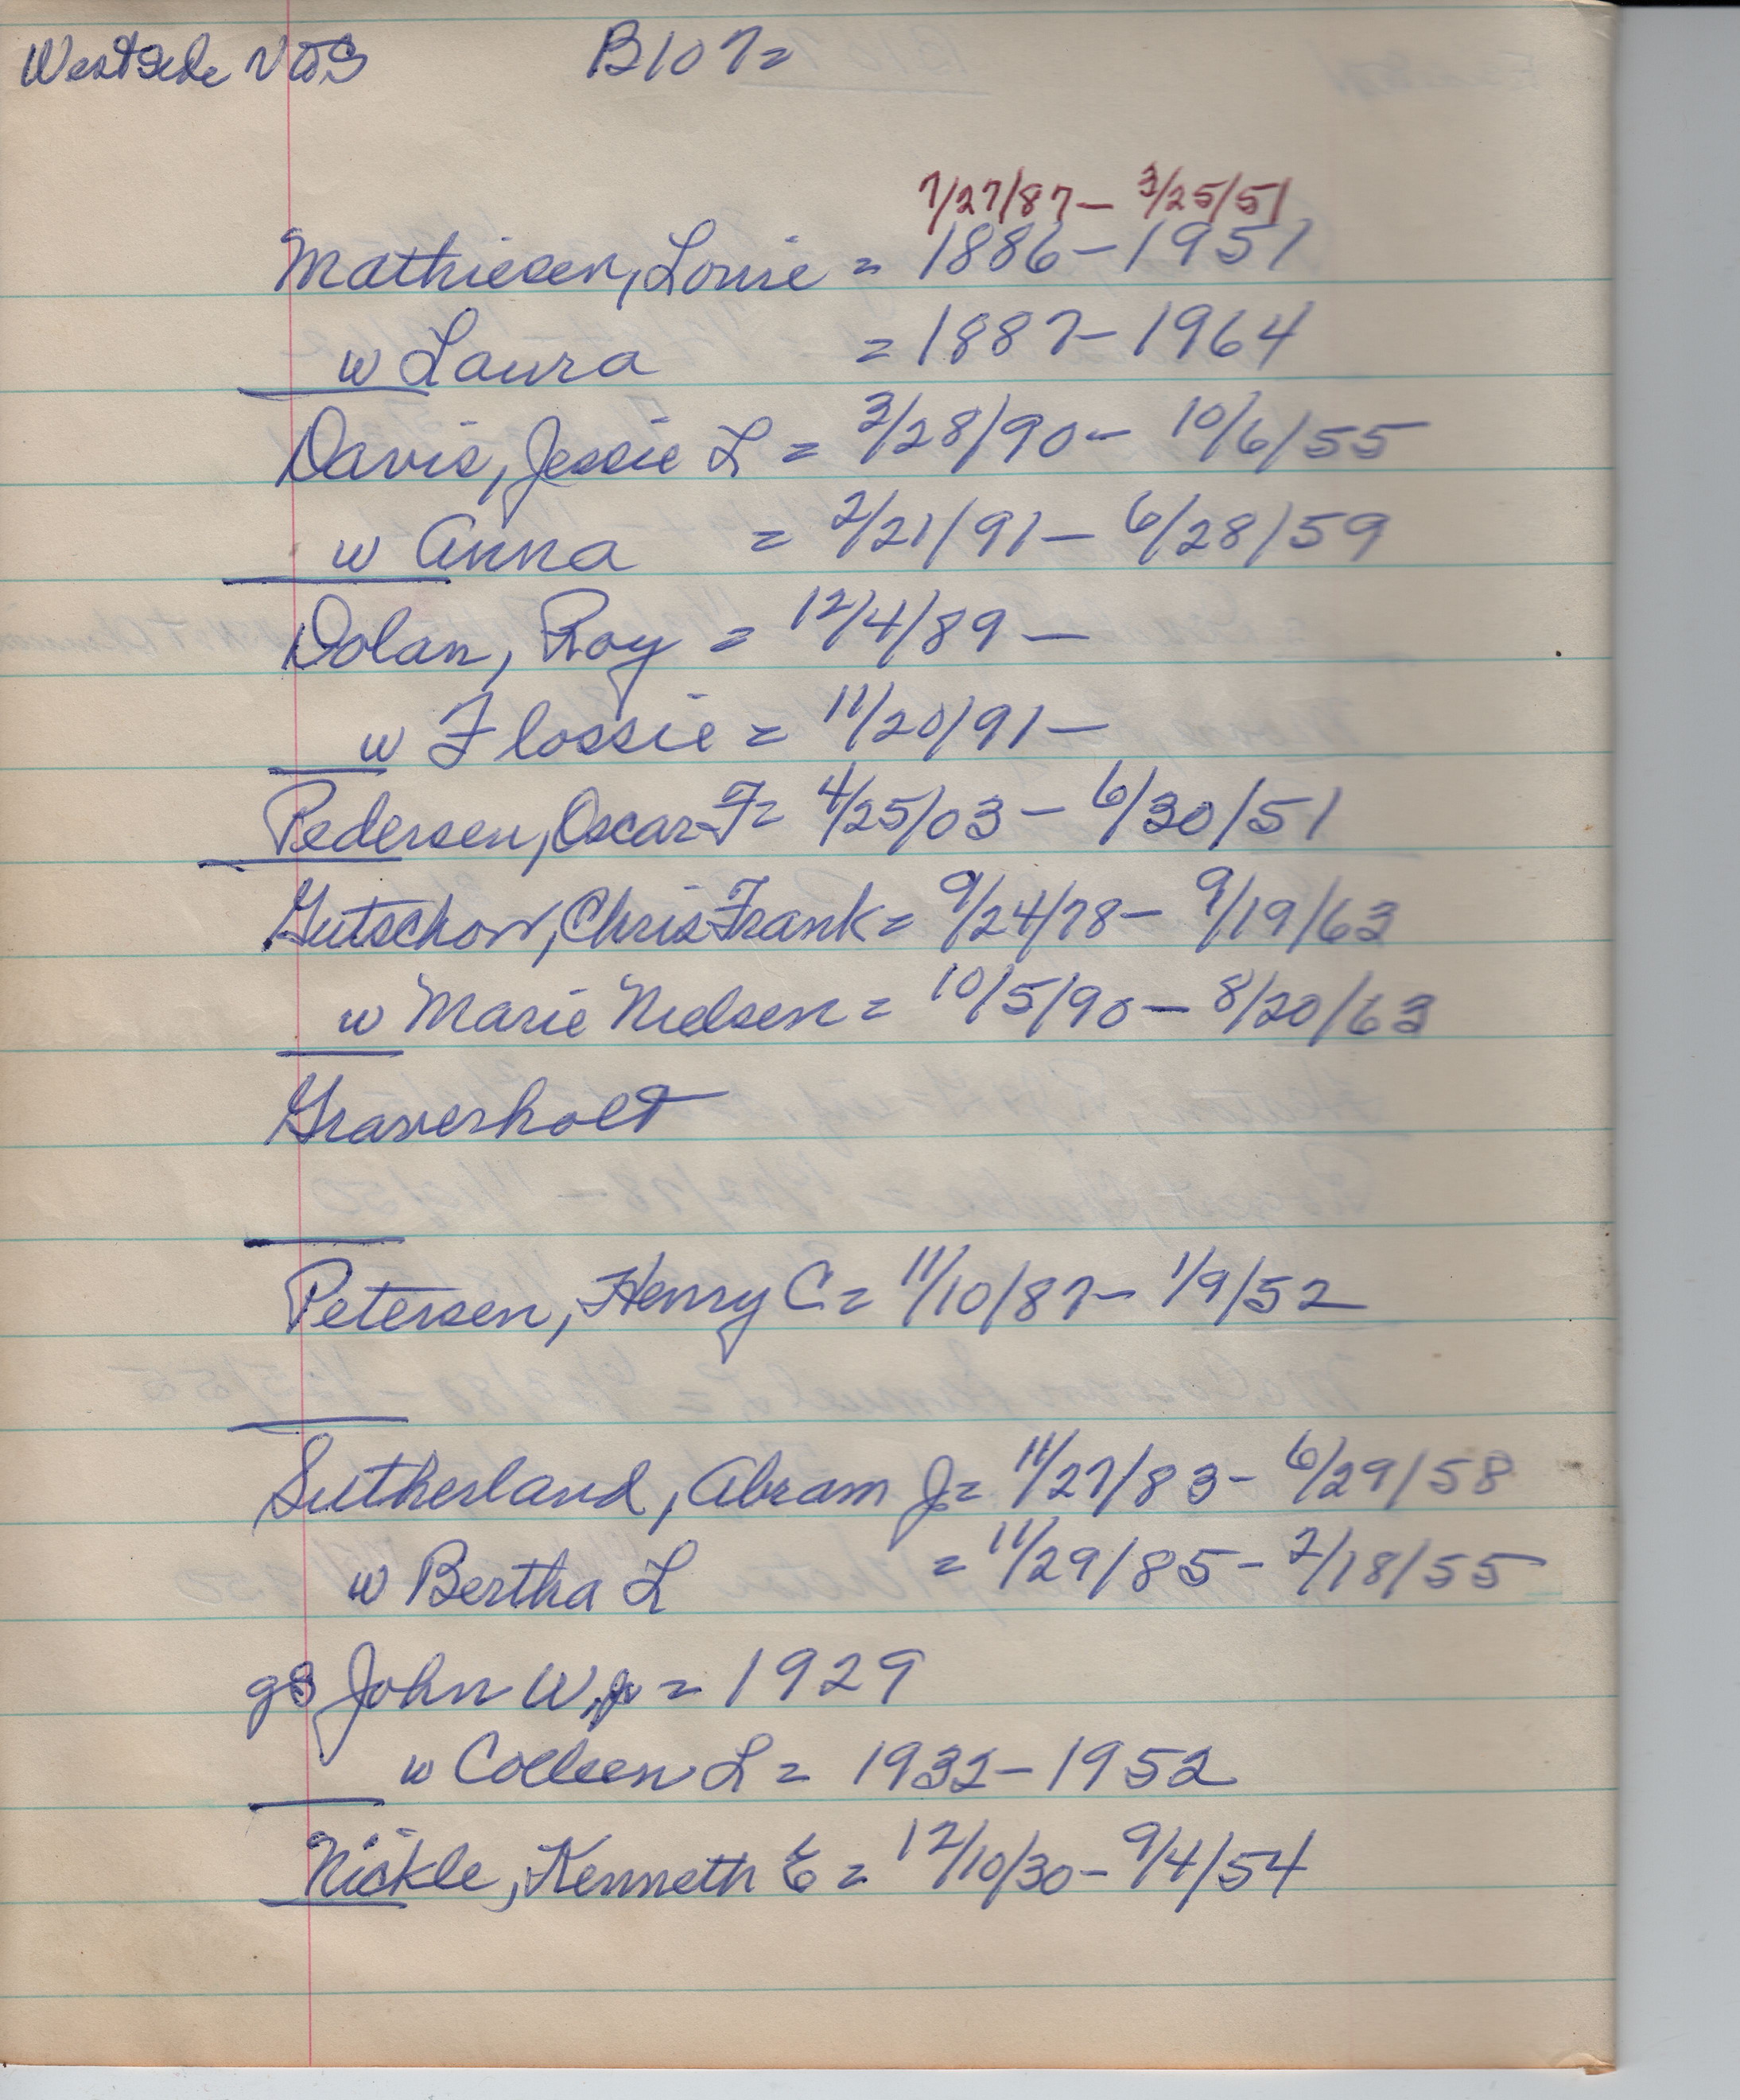 Westside N to S B107=
7/27/87 - 3/25/51
Mathiesen, Louie = 1886 - 1951
w Laura = 1887 - 1964
Davis, Jessie L = 3/28/90 - 10/6/55
w Anna = 2/21/91 - 6/28/59
Dolan, Roy = 12/4/89 -
w Flossie = 11/20/91 -
Pedersen, Oscar F = 4/25/03 - 6/30/51
Gutschow, Chris Frank = 9/24/78 - 9/19/63
w Marie Nielsen = 10/5/90 - 8/20/63
Graverholt
Petersen, Henry C = 11/10/87 - 1/9/52
Sutherland, Abram J = 11/27/83 - 6/29/58
w Bertha L = 11/29/85 - 2/18/55
gs John W, Jr = 1929
w Colleen L = 1932 - 1952
Nickle, Kenneth E = 12/10/30 - 9/4/54